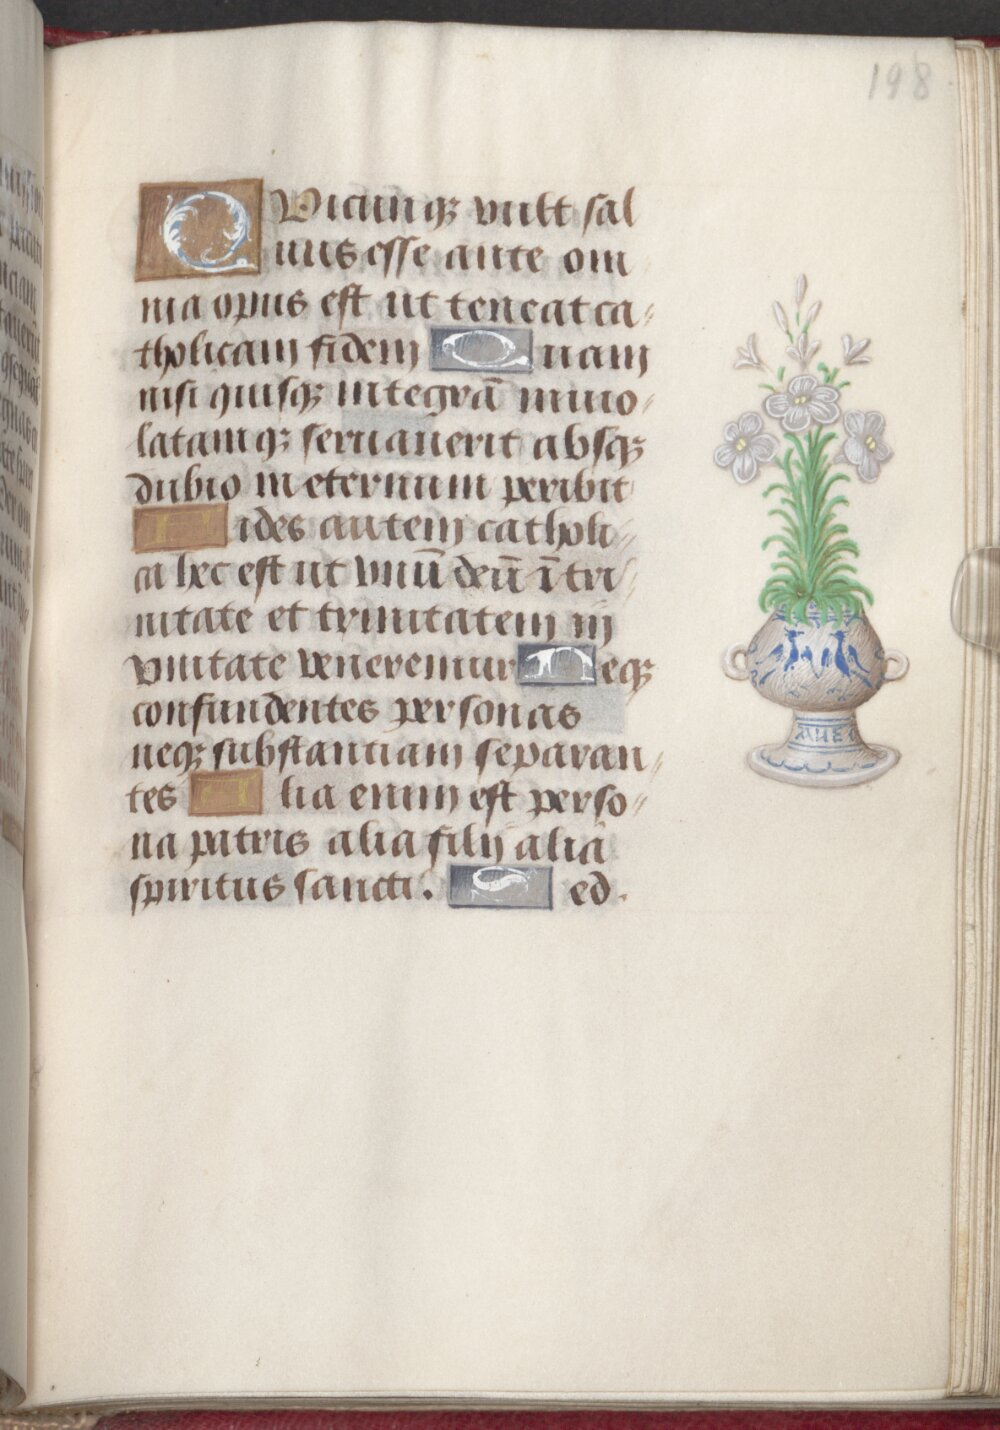 198
QVicunqꝫ vult sal
uus esse ante om
nia opus est ut teneat ca-
tholicam fidem Quam
nisi quisqꝫ integrā inuio-
latamqꝫ seruauerit absqꝫ
dubio in eternum peribit
Fides autem catholi-
ca hec est ut vnū deū ī tri-
nitate et trinitatem in
vnitate veneremur Neqꝫ
confundentes personas
neqꝫ substantiam separan-
tes Alia enim est perso-
na patris alia filij aliā
spiritus sancti. Sed.
AVE